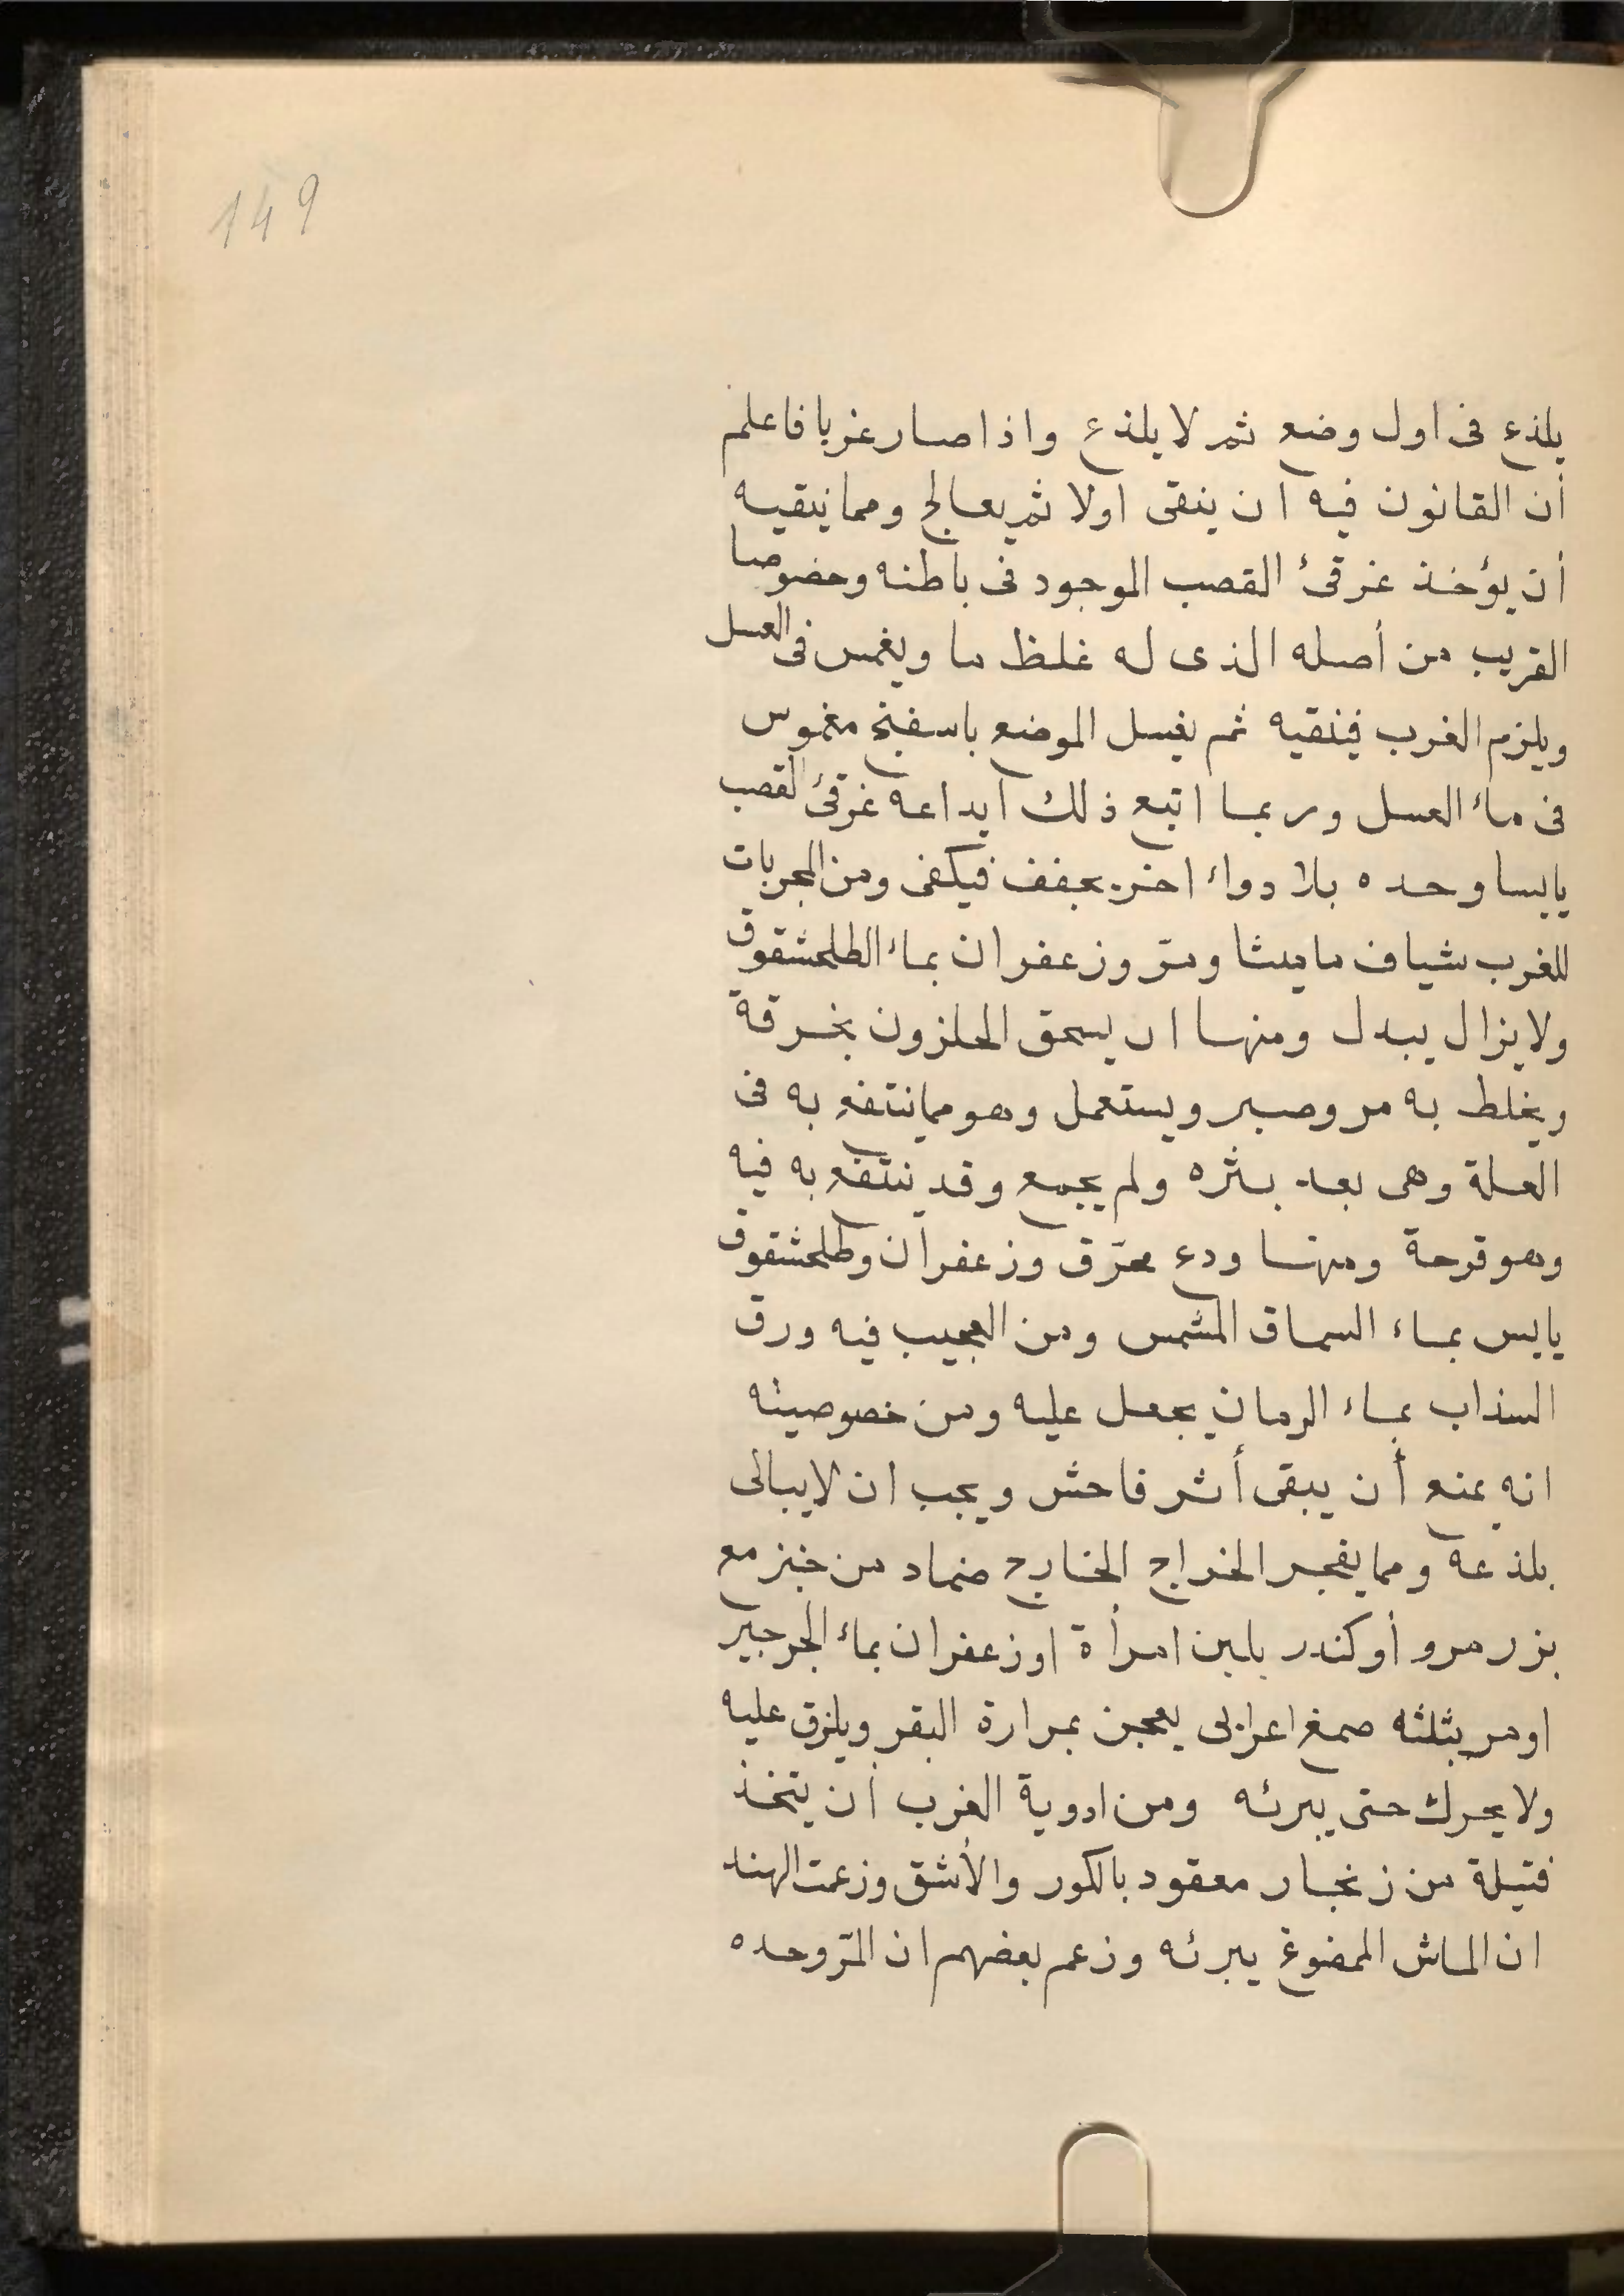 149
يلذع فى اول وضع ثم لا يلذع واذا صار غربا فاعلم
أن القانون فيه ان ينقى اولا ثم يعالج ومما ينقيه
أن يؤخذ غرقئ القصب الموجود فى باطنه وخصوصا
القريب من أصله الذى له غلظ ما ويغمس فى العسل
ويلزم الغرب فينقيه ثم يغسل الموضع باسفنج مغموس
فى ماء العسل وربما اتبع ذلك ايداعه غرقئ القصب
يابسا وحده بلا دواء اخر يجفف فيكفى ومن المجربات
للغرب شياف ماميثا ومرّ وزعفران بماء الطلحشقوق
ولا يزال يبدل ومنها ان يسحق الحلزون بخرقة
ويخلط به مر وصبر ويستعمل وهو مما ينتفع به فى
العلة وهى بعد بثره ولم يجمع وقد ينتفع به فيه
وهو قرحة ومنها ودع محرّق وزعفران وطلحشقوق
يابس بماء السماق المشمس ومن العجيب فيه ورق
السذاب بماء الرمان يجعل عليه ومن خصوصيته
انه يمنع أن يبقى أثر فاحش ويجب ان لا يبالى
بلذعه ومما يفجر الخراج الخنارج ضماد من خبز مع
بزر مرو أو كندر بلبن امرأة او زعفران بماء الجرجير
او مر بثلثه صمغ اعرابى يعجن بمرارة البقر ويلزق عليه
ولا يحرك حتى يبرئه ومن ادوية الغرب أن يتخذ
فتيلة من زنجار معقود بالكور والأشق وزعمت الهند
ان الماش الممضوغ يبرئه وزعم بعضهم ان المرّ وحده